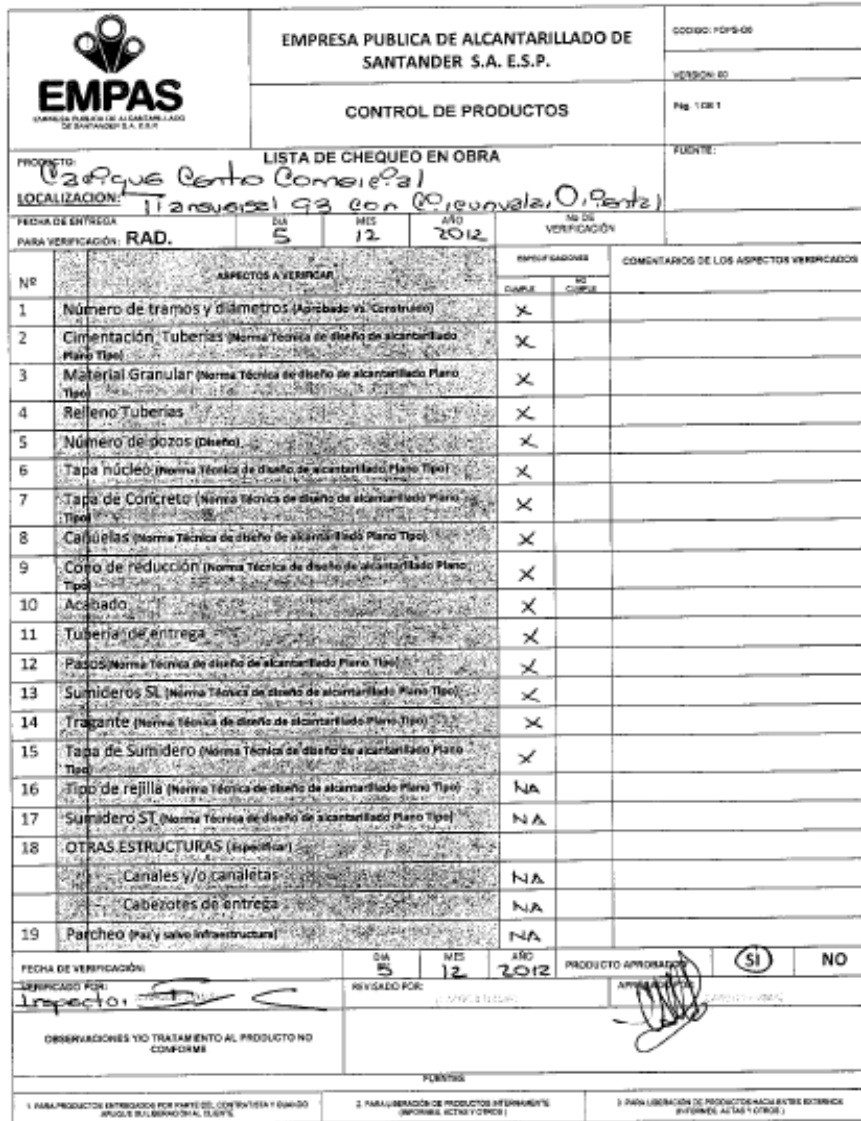 EMPAS
EMPRESA PUBLICA DE ALCANTARILLADO
DE SANTANDER S.A. E.S.P.
EMPRESA PUBLICA DE ALCANTARILLADO DE
SANTANDER S.A. E.S.P.
CONTROL DE PRODUCTOS
VERSION: 00
Pág. 1 DE 1
LISTA DE CHEQUEO EN OBRA
FUENTE:
PRODUCTO:
Cacique Centro Comercial
LOCALIZACION: Transversal 93 con Circunvalar Oriental
FECHA DE ENTREGA
PARA VERIFICACIÓN: RAD.
DIA 5 MES 12 AÑO 2012
No DE VERIFICACIÓN
Nº ASPECTOS A VERIFICAR ESPECIFICACIONES COMENTARIOS DE LOS ASPECTOS VERIFICADOS
CUMPLE NO CUMPLE
1 Número de tramos y diámetros (Aprobado vs. Construido) X
2 Cimentación Tuberias (Norma Técnica de diseño de alcantarillado Plano Tipo) X
3 Material Granular (Norma Técnica de diseño de alcantarillado Plano Tipo) X
4 Relleno Tuberias X
5 Número de pozos (Diseño) X
6 Tapa núcleo (Norma Técnica de diseño de alcantarillado Plano Tipo) X
7 Tapa de Concreto (Norma Técnica de diseño de alcantarillado Plano Tipo) X
8 Cañuelas (Norma Técnica de diseño de alcantarillado Plano Tipo) X
9 Cono de reducción (Norma Técnica de diseño de alcantarillado Plano Tipo) X
10 Acabado X
11 Tuberia de entrega X
12 Pasos (Norma Técnica de diseño de alcantarillado Plano Tipo) X
13 Sumideros SL (Norma Técnica de diseño de alcantarillado Plano Tipo) X
14 Tragante (Norma Técnica de diseño de alcantarillado Plano Tipo) X
15 Tapa de Sumidero (Norma Técnica de diseño de alcantarillado Plano Tipo) X
16 Tipo de rejilla (Norma Técnica de diseño de alcantarillado Plano Tipo) NA
17 Sumidero ST (Norma Técnica de diseño de alcantarillado Plano Tipo) NA
18 OTRAS ESTRUCTURAS (especificar)
- Canales y/o canaletas NA
- Cabezotes de entrega NA
19 Parcheo (Paz y salvo infraestructura) NA
FECHA DE VERIFICACIÓN: DIA 5 MES 12 AÑO 2012 PRODUCTO APROBADO SI NO
VERIFICADO POR: REVISADO POR:
Inspector
OBSERVACIONES Y/O TRATAMIENTO AL PRODUCTO NO
CONFORME
FUENTES
1. PARA PRODUCTOS ENTREGADOS POR PARTE DEL CONTRATISTA Y CUANDO
APLIQUE SU LIBERACIÓN AL CLIENTE.
2. PARA LIBERACIÓN DE PRODUCTOS INTERNAMENTE
(INFORMES, ACTAS Y OTROS)
3. PARA LIBERACIÓN DE PRODUCTOS HACIA ENTES EXTERNOS
(INFORMES, ACTAS Y OTROS)